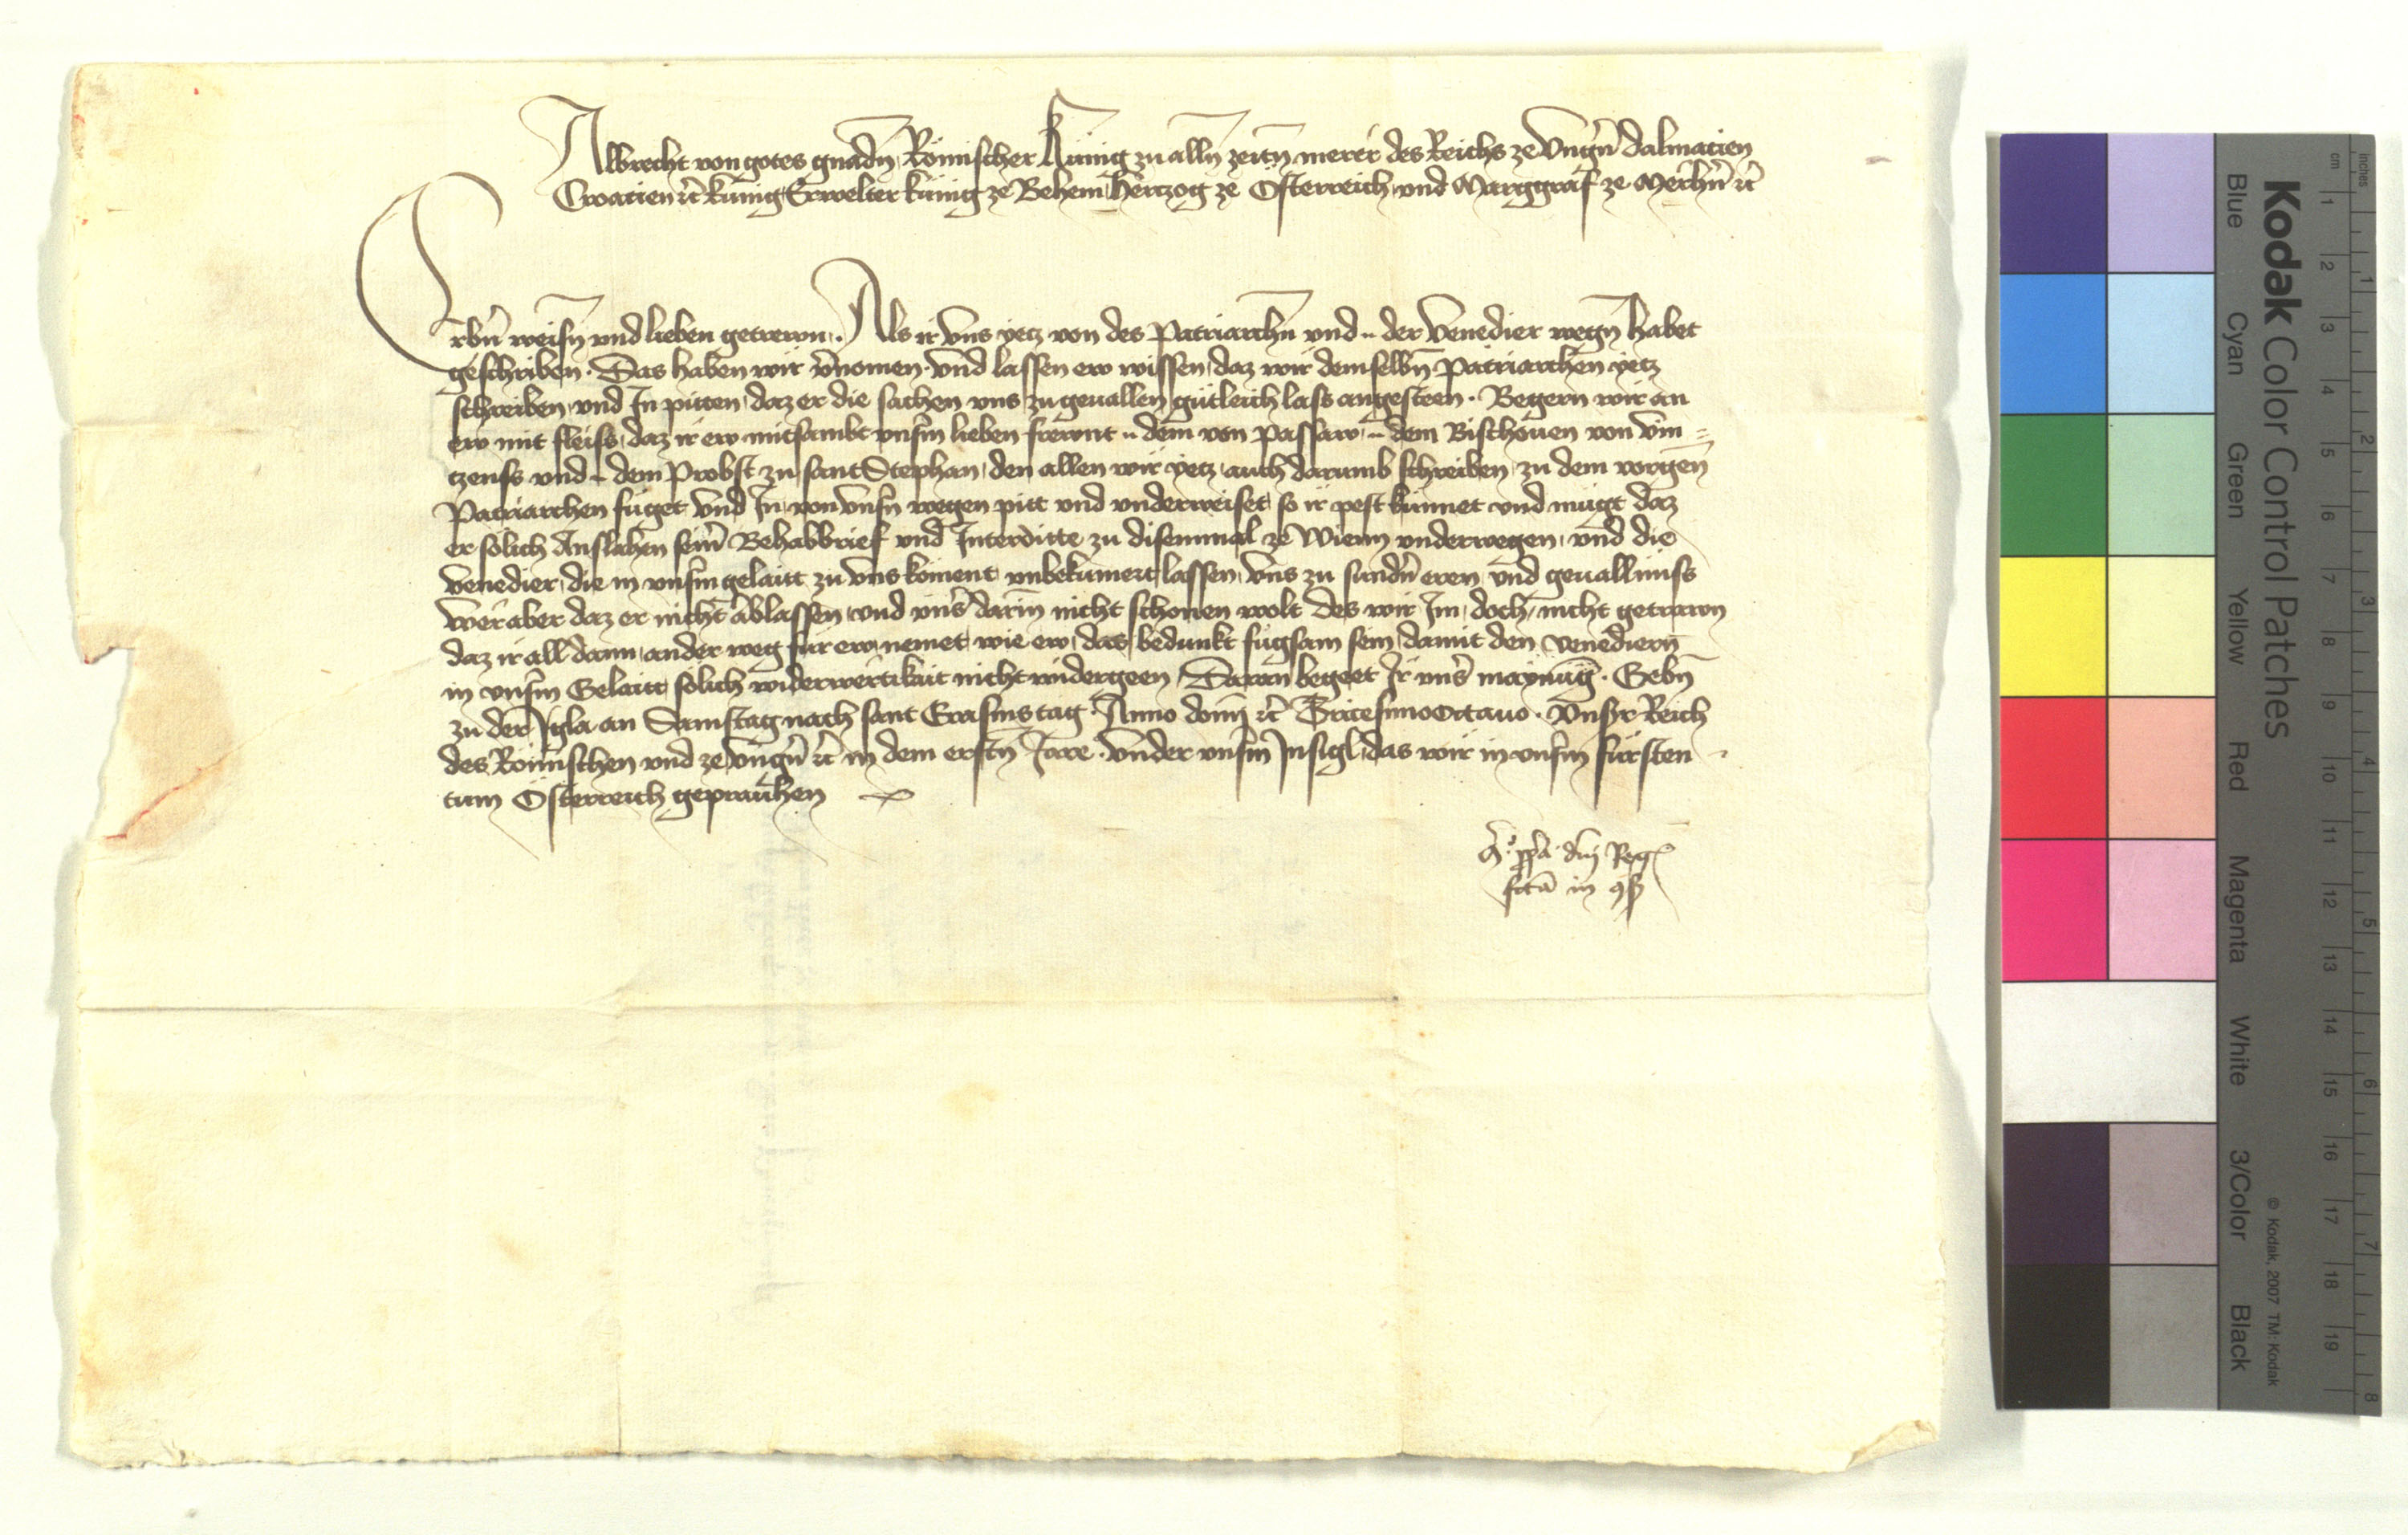 Albrecht von gotes gnadn Römischer Künig zu alln zeitn merer des Reichs ze Vngern Dalmacien
Croacien etc künig Erwelter künig ze Behem Herczog ze Österreich und Marggraf ze Merhern etc
Erbern weisn und lieben getrewn. Als ir vns yetz von des Patriarchn und .. der Venedier wegn habet
geschriben. Das haben wir vernomen. Vnd lassen ew wissen, daz wir demselbn Patriarchen yetz
schreiben, vnd In pitten, daz er die sachen vns zu geuallen gütleich lass angesteen. Begern wir an
ew mit fleiss, daz ir ew mitsambt vnserm lieben frewnt .. dem von Passaw, .. dem Bischouen von Vin=
tzenss vnd .. dem Probst zu sant Stephan, den allen wir yetz auch darumb schreiben, zu dem vorgen
Patriarchen füget vnd In von vnsern wegen pitt vnd vnderweiset so ir pest künnet und mügt daz
er solich Anslahen seiner Behabbrief vnd Interdicte zu disemmal ze Wienn vnderwegen, vnd die
Venedier, die in vnserm gelaitt zu vns koment vnbekumert lassen, vns zu sundern eren, vnd geuallnuss
Wer aber daz er nicht ablassen, vnd vnser darin nicht schonen wolt des wir Im doch nicht getrawn
daz ir all dann ander weg für ew nemet, wie ew das bedunkt fügsam sein, damit den Venediern
in vnserm Gelaitt solich widerwertikait nicht widergeen. Daran begeet Ir vnser maynung. Gebn
zu der Igla an Samstag nach sant Erasmstag. Anno domini etc Tricesimooctauo. Vnsrr Reich
des Römischen vnd ze Vngern etc in dem erstn Jare. Vnder vnserm Insigl, das wir in vnserm fürsten
tum Österreich geprauchen
dni Reg
in
Kodak Color Control Patches
Blue Cyan Green Yellow Red Magenta White 3/Color Black
© Kodak, 2007 TM: Kodak
cm 1 2 3 4 5 6 7 8 9 10 11 12 13 14 15 16 17 18 19
inches 1 2 3 4 5 6 7 8